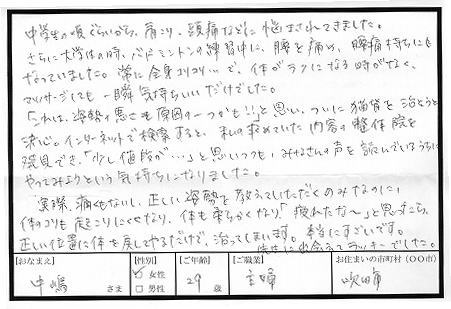 中学生の頃ぐらいから、肩こり、頭痛などに悩まされてきました。
さらに大学生の時、バドミントンの練習中に、腰を痛め、腰痛持ちにも
なっていました。常に全身コリコリ…で、体がラクになる時がなく、
マッサージしても一瞬気持ちいいだけでした。
「これは、姿勢の悪さも原因の一つかも!!」と思い、ついに猫背を治そうと
決心。インターネットで検索すると、私の求めていた内容の整体院を
発見でき、「少し値段が…」と思いつつも、みなさんの声を読んでいるうちに
やってみようという気持ちになりました。
実際、痛くもないし、正しい姿勢を教えてしただくのみなのに、
体のコリも起こりにくくなり、体も柔らかくなり「疲れたな〜」と思ったら、
正しい位置に体を戻してやるだけで、治ってしまいます。本当にすごいです。
先生に出会えてラッキーでした。
【おなまえ】 【性別】 【ご年齢】 【ご職業】 お住まいの市町村(〇〇市)
中嶋 さま 女性 男性 29 歳 主婦 吹田市